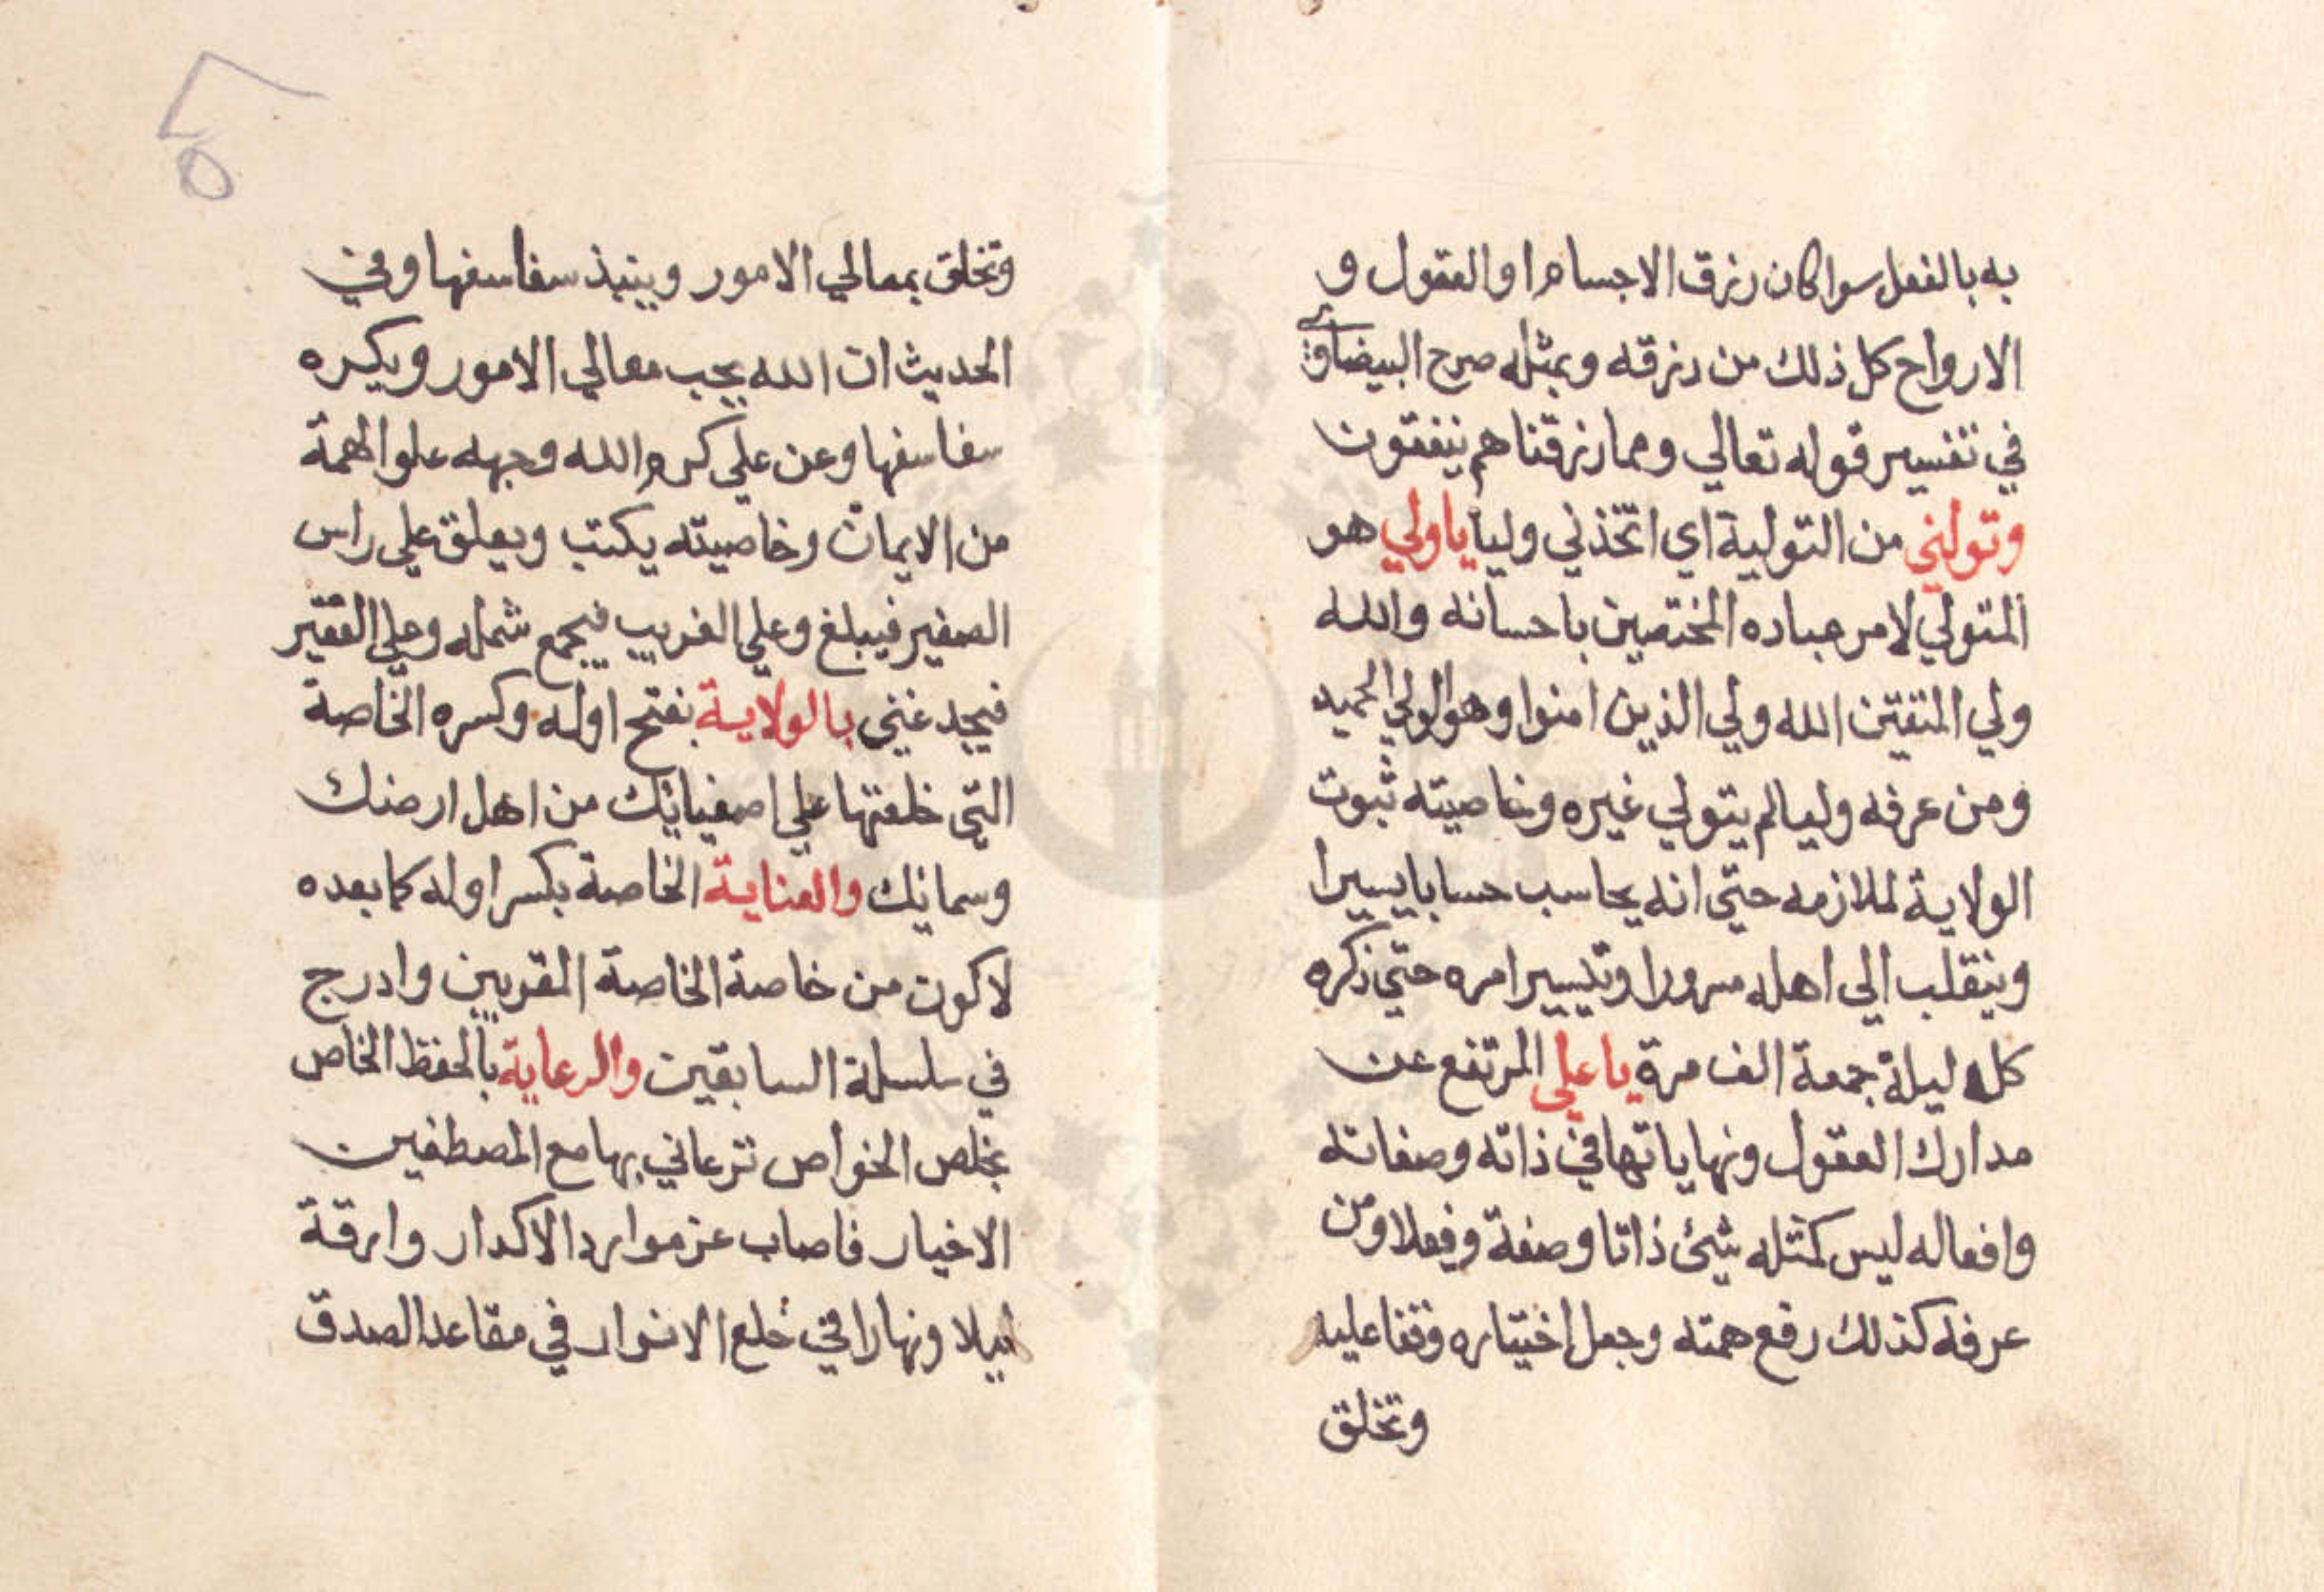 به بالفعل سوا كان رزق الاجسام او العقول و
الارواح كل ذلك من رزقه وبمثله صرح البيضاوي
في تفسير قوله تعالي ومما رزقناهم ينفقون
وتولني من التولية اي اتخذني وليا يا ولي هو
المتولي لامر عباده المختصين باحسانه والله
ولي المتقين الله ولي الذين امنوا وهو الولي الحميد
ومن عرفه وليا لم يتولي غيره وخاصيته ثبوت
الولاية لملازمه حتي انه يحاسب حسابا يسيرا
وينقلب الي اهله مسرورا وتيسير امره حتي ذكره
كل ليلة جمعة الف مرة يا علي المرتفع عن
مدارك العقول ونهاياتها في ذاته وصفاته
وافعاله ليس كمثله شئ ذاتا وصفة وفعلا ومن
عرفه كذلك رفع همته وجعل اختياره وقفا عليه
وتخلق
٨
٥
وتخلق بمعالي الامور وينبذ سفاسفها وفي
الحديث ان الله يحب معالي الامور ويكره
سفاسفها وعن علي كرم الله وجهه علو الهمة
من الايمان وخاصيته يكتب ويعلق علي راس
الصغير فيبلغ وعلي الغريب فيجمع شمله وعلي الفقير
فيجد غني بالولاية بفتح اوله وكسره الخاصة
التي خلعتها علي اصفيائك من اهل ارضك
وسمائك والعناية الخاصة بكسر اوله كما بعده
لاكون من خاصة الخاصة المقربين وادرج
في سلسلة السابقين والرعاية بالحفظ الخاص
بخلص الخواص ترعاني بها مع المصطفين
الاخيار فاصاب عن موارد الاكدار وارقة
ليلا ونهارا في خلع الانوار في مقاعد الصدق